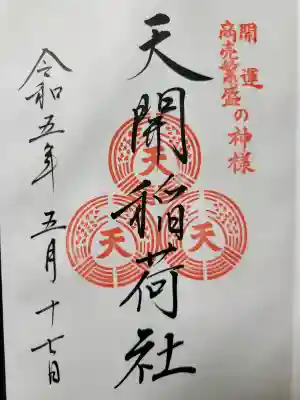 開運
商売繁盛の神様
天開稲荷社
天
天
天
令和五年五月十七日